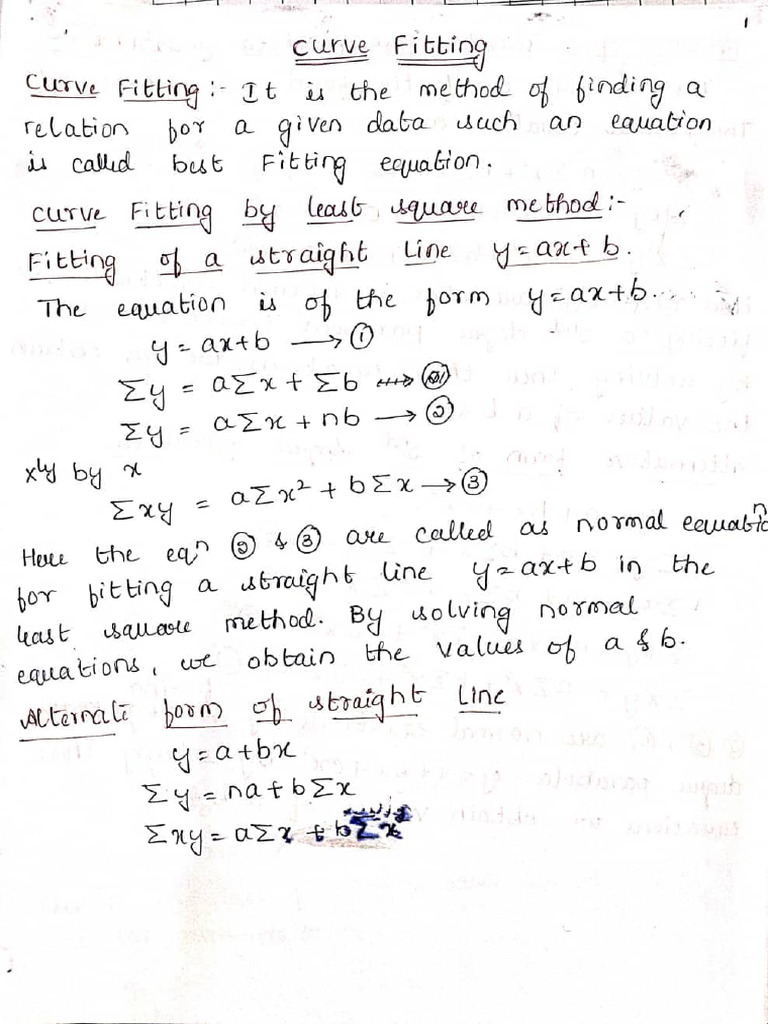 1
Curve Fitting
Curve Fitting :- It is the method of finding a
relation for a given data such an equation
is called best Fitting equation.
Curve Fitting by least square method :-
Fitting of a straight Line y = ax + b.
The equation is of the form y = ax + b.
y = ax + b → ①
Σy = aΣx + Σb
Σy = aΣx + nb → ②
xly by x
Σxy = aΣx² + bΣx → ③
Here the eqⁿ ② & ③ are called as normal equatioⁿ
for fitting a straight line y = ax + b in the
least square method. By solving normal
equations, we obtain the values of a & b.
Alternate form of straight Line
y = a + bx
Σy = na + bΣx
Σxy = aΣx + bΣx